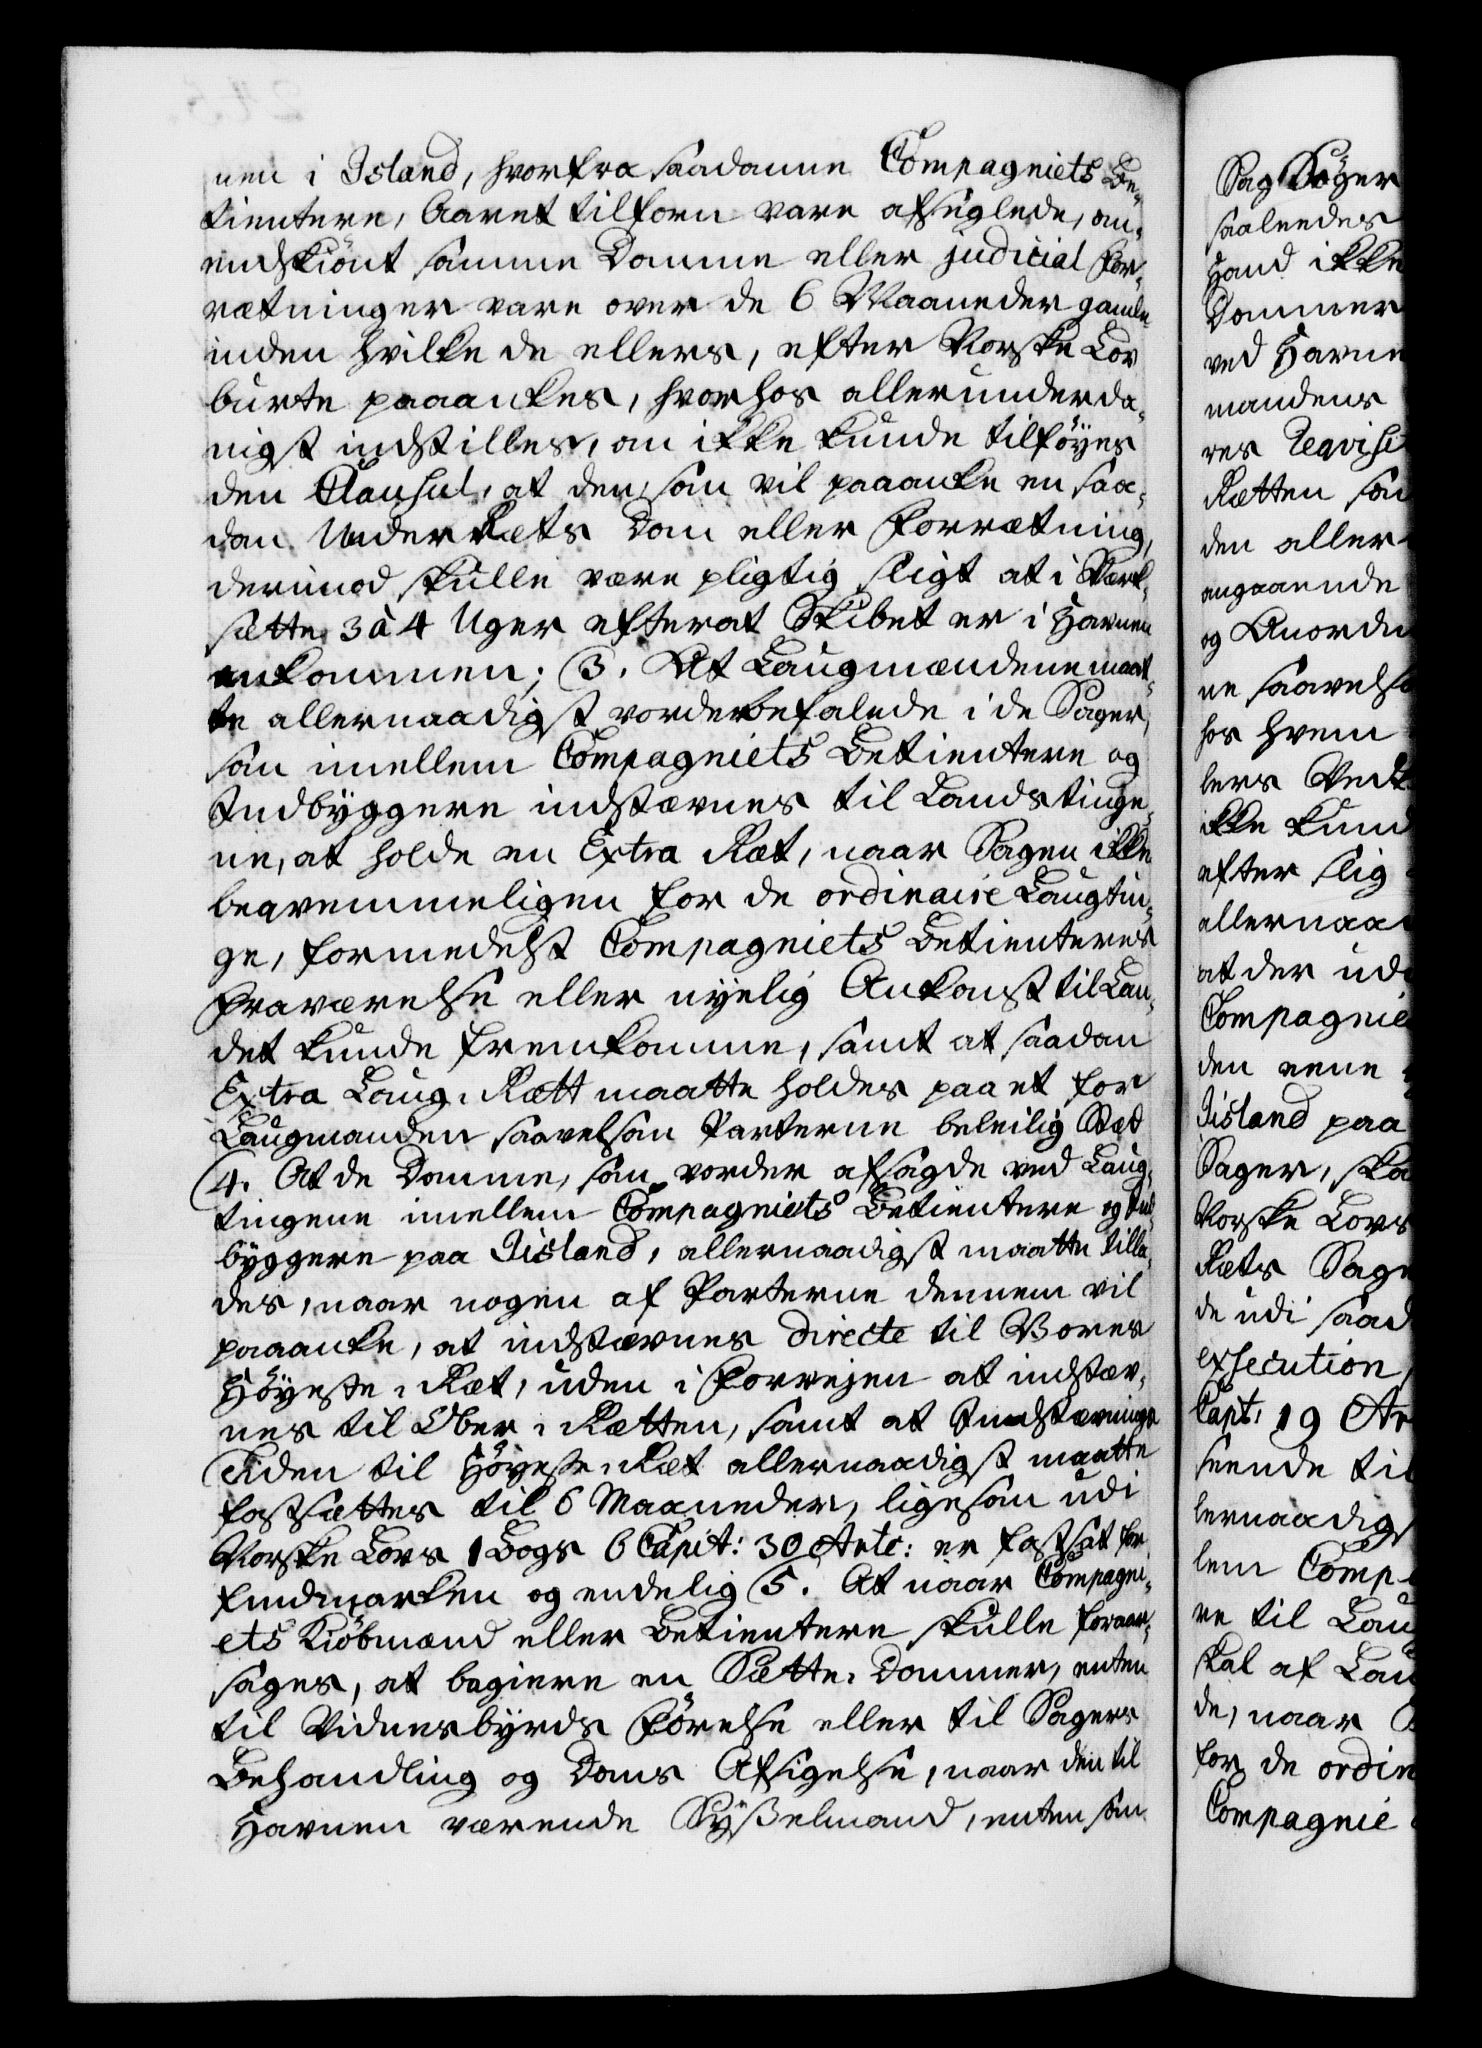 nen i Island, hvorfra saadanne Compagniets Be-
tientere, Aaret tilforn vare afseglede, an-
endskiönt samme Domme eller judicial For-
rætninger vare over de 6 Maaneder gamle
inden hvilke de ellers, efter Norske Lov
burte paaankes, hvorhos allerunderda-
nigst indstilles, om ikke kunde tilföyes
den Clausul, at den, som vil paaanke en saa-
dan UnderRets Dom eller Forrætning,
derimod skulle være pligtig sligt at i Værk-
sætte 3 à 4 Uger efterat Skibet er i Havnen
ankommen; 3. At Laugmændene maat-
te allernaadigst vorde befalede i de Sager,
som imellem Compagniets Betientere og
Indbyggere indstævnes til Landstinge-
ne, at holde en Extra Ræt, naar Sagen ikke
beqvemmeligen for de ordinaire Laugtin-
ge, formedelst Compagniets Betienteres
Fraværelse eller nyelig Ankomst til Lan-
det kunde fremkomme, samt at saadan
Extra Laug-Rætt maatte holdes paa et for
Laugmanden saavelsom Parterne beleilig Stæd
4. At de Domme, som vorder afsagde ved Laug-
tingene imellem Compagniets Betientere og Ind-
byggere paa Iisland, allernaadigst maatte tilla-
des, naar nogen af Parterne dennem vil
paaanke, at indstævnes directe til Vores
Höyeste-Ræt, uden i Forvejen at indstæv-
nes til Ober-Rætten, samt at Indstævnings
Tiden til Höyeste-Ræt allernaadigst maatte
fastsættes til 6 Maaneder, ligesom udi
Norske Lovs 1 Bogs 6 Capit: 30 Artc: er fastsat for
Findmarken og endelig 5. At naar Compagni-
ets Kiöbmænd eller Betientere skulle foraar-
sages, at begiere en Sætte-Dommer, enten
til Vidnesbyrds Förelse eller til Sagers
Behandling og Doms Afsigelse, naar den til
Havnen værende Sysselmand, enten som
Sag Söger
saaleedes
Hand ikke
Dommer
ved Havne
mandens
res Reqvisi
Rætten som
den aller-
angaaende
og Anordn
ne saavelso
hos hvem
lers Ved
ikke kund
efter slig
allernaa
at der ud
Compagnie
den eene
Iisland paa
Sager, ska
Norske Lovs
Rets Sage
de udi saad
exsecution,
Capt: 19 Ar
seende til
lernaadigs
lem Comp-
re til Lau
skal af Lau
de, naar
for de ordin
Compagnie